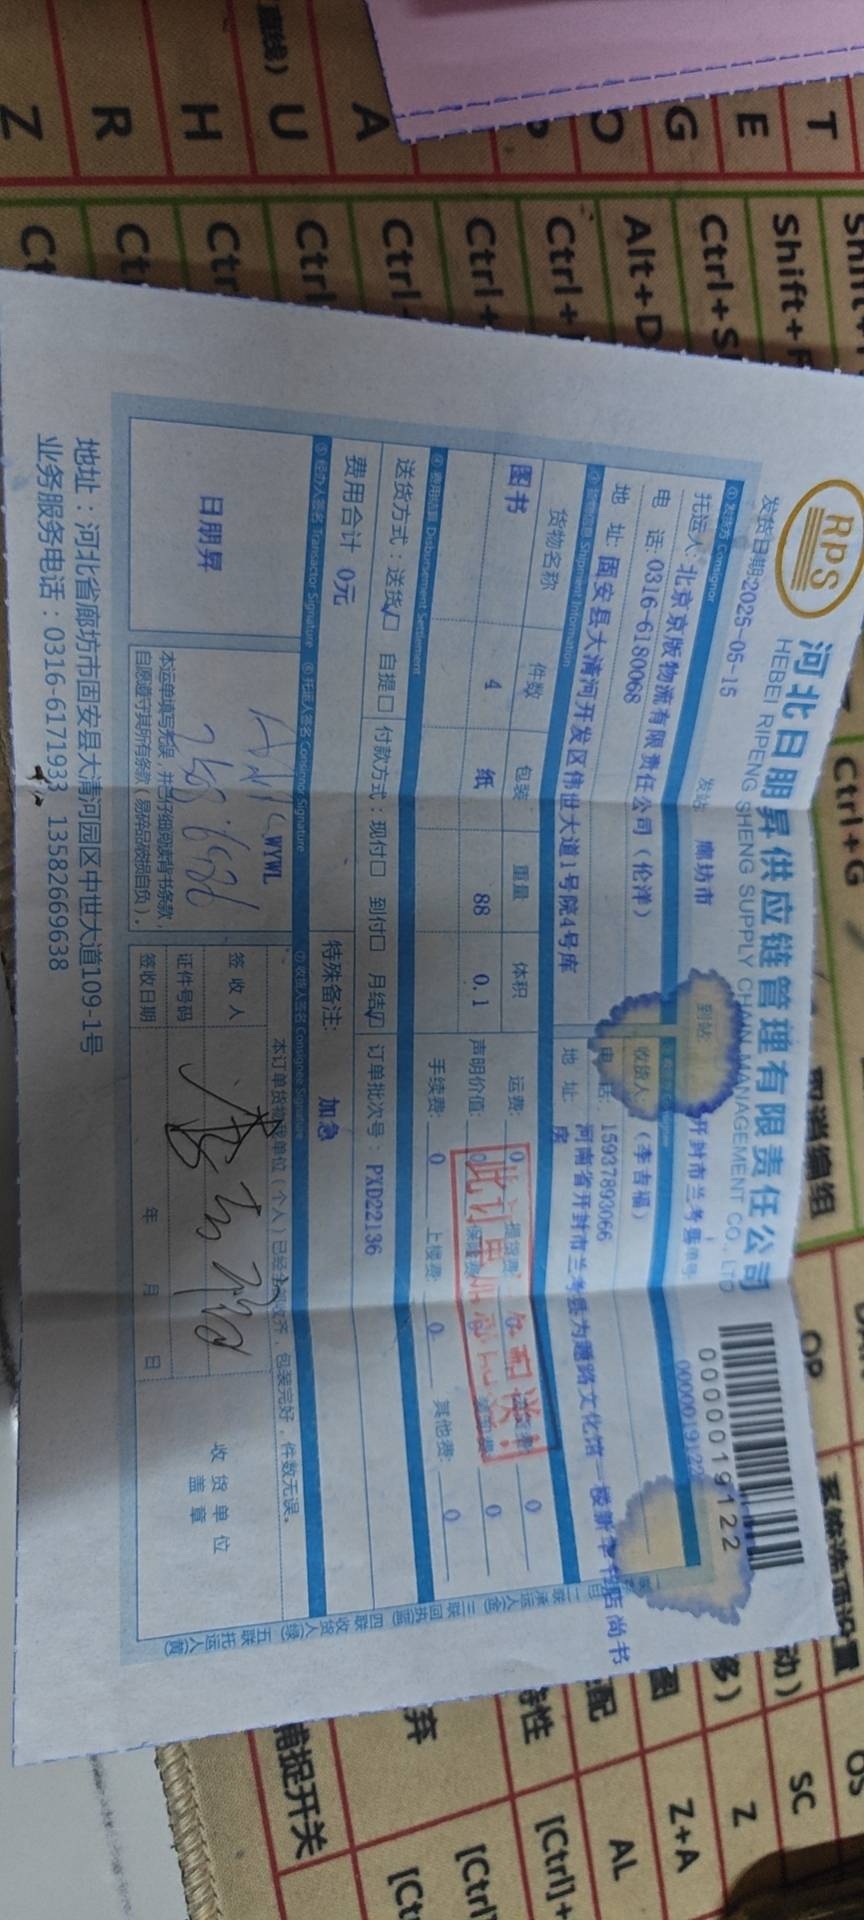 RPS
河北日朋昇供应链管理有限责任公司
HEBEI RIPENG SHENG SUPPLY CHAIN MANAGEMENT CO., LTD
0000019122
发货日期:2025-05-15
发站: 廊坊市
到站: 开封市兰考县
单号: 0000019122
① 发货方 Consignor
托运人: 北京京版物流有限责任公司（伦洋）
电 话: 0316-6180068
地 址: 固安县大清河开发区伟世大道1号院4号库
收货人: （李吉福）
电 话: 15937893066
地 址: 河南省开封市兰考县为民路文化馆一楼新华书店尚书房
③ 货物信息 Shipment Information
货物名称 件数 包装 重量 体积
图书 4 纸 88 0.1
运费: 0 提货费: 送货费: 0
声明价值: 0 保险费: 0 0
手续费: 0 上楼费: 0 其他费: 0
④ 费用结算 Disbursement Settlement
送货方式：送货☑ 自提☐ 付款方式：现付☐ 到付☐ 月结☑ 订单批次号：PXD22136
费用合计 0元
特殊备注: 加急
⑤ 经办人签名 Transactor Signature
⑥ 托运人签名 Consignor Signature
⑦ 收货人签名 Consignee Signature
日朋昇
WYWL
本运单填写无误，并已仔细阅读背书条款，
自愿遵守其所有条款（易碎品破损自负）。
本订单货物我单位（个人）已经 收齐，包装完好，件数无误。
签收人
证件号码
签收日期 年 月 日
收货单位
盖章
地址：河北省廊坊市固安县大清河园区中世大道109-1号
业务服务电话：0316-6171933 13582669638
T
E
G
O
A
U
H
R
Z
Alt+D
Ctrl+G
取消编组
OP
SC
Z
Z+A
AL
捕捉开关